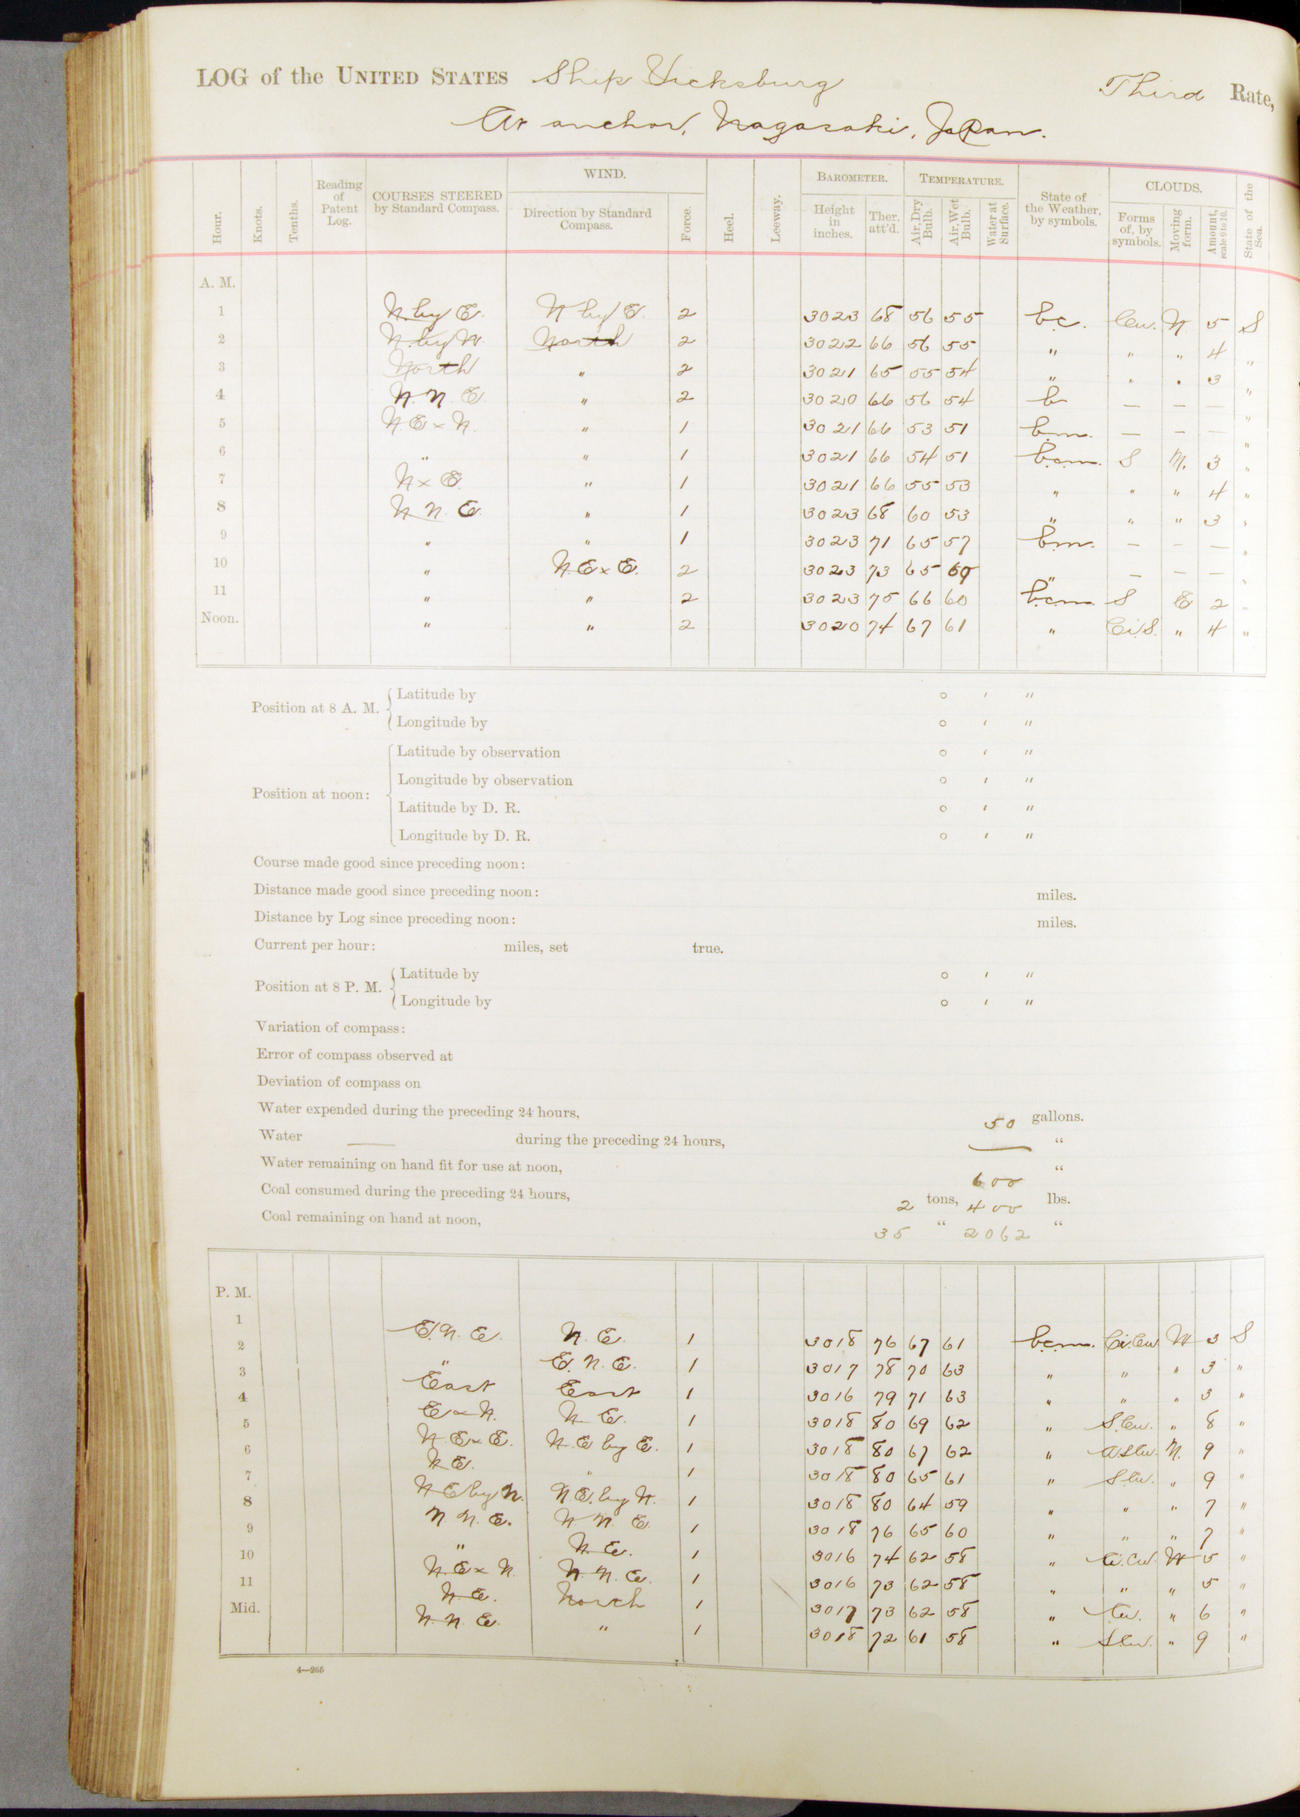 LOG of the UNITED STATES Ship Vicksburg Third Rate,
At anchor, Nagasaki, Japan.
Hour. Knots. Tenths. Reading of Patent Log. COURSES STEERED by Standard Compass. WIND. Direction by Standard Compass. Force. Heel. Leeway. BAROMETER. Height in inches. Ther. att'd. TEMPERATURE. Air, Dry Bulb. Air, Wet Bulb. Water at Surface. State of the Weather, by symbols. CLOUDS. Forms of, by symbols. Moving form. Amount, scale 0 to 10. State of the Sea.
A. M.
1 N. by E. N by E. 2 3023 68 56 55 b.c. Cu. N 5 S
2 N. by W. North 2 3022 66 56 55 " " " 4 "
3 North " 2 3021 65 55 54 " " " 3 "
4 N N E " 2 3020 66 56 54 b — — — "
5 N E x N. " 1 3021 66 53 51 b.m. — — — "
6 " " 1 3021 66 54 51 b.c.m. S N. 3 "
7 N x E. " 1 3021 66 55 53 " " " 4 "
8 N N. E. " 1 3023 68 60 53 " " " 3 "
9 " " 1 3023 71 65 57 b.m. — — — "
10 " N. E x E. 2 3023 73 65 60 " — — — "
11 " " 2 3023 75 66 60 b.c.m. S E 2 "
Noon. " " 2 3020 74 67 61 " Ci.S. " 4 "
Position at 8 A. M. Latitude by ° ' "
Longitude by ° ' "
Position at noon: Latitude by observation ° ' "
Longitude by observation ° ' "
Latitude by D. R. ° ' "
Longitude by D. R. ° ' "
Course made good since preceding noon:
Distance made good since preceding noon: miles.
Distance by Log since preceding noon: miles.
Current per hour: miles, set true.
Position at 8 P. M. Latitude by ° ' "
Longitude by ° ' "
Variation of compass:
Error of compass observed at
Deviation of compass on
Water expended during the preceding 24 hours, 50 gallons.
Water —— during the preceding 24 hours, — "
Water remaining on hand fit for use at noon, 600 "
Coal consumed during the preceding 24 hours, 2 tons, 400 lbs.
Coal remaining on hand at noon, 35 " 2062 "
P. M.
1 E. N. E. N. E. 1 3018 76 67 61 b.c.m. Ci.Cu W 3 S
2 " E. N. E. 1 3017 78 70 63 " " " 3 "
3 East East 1 3016 79 71 63 " " " 3 "
4 E x N. N. E. 1 3018 80 69 62 " S.Cu. " 8 "
5 N. E x E. N. E by E. 1 3018 80 67 62 " N. 9 "
6 N. E. " 1 3018 80 65 61 " S.Cu. " 9 "
7 N E by N. N E. by N. 1 3018 80 64 59 " " " 7 "
8 N N. E. N N. E. 1 3018 76 65 60 " " " 7 "
9 " N. E. 1 3016 74 62 58 " W 5 "
10 N. E x N. N. N. E. 1 3016 73 62 58 " " " 5 "
11 N. E. North 1 3017 73 62 58 " Cu. " 6 "
Mid. N. N. E. " 1 3018 72 61 58 " S Cu. " 9 "
4—265